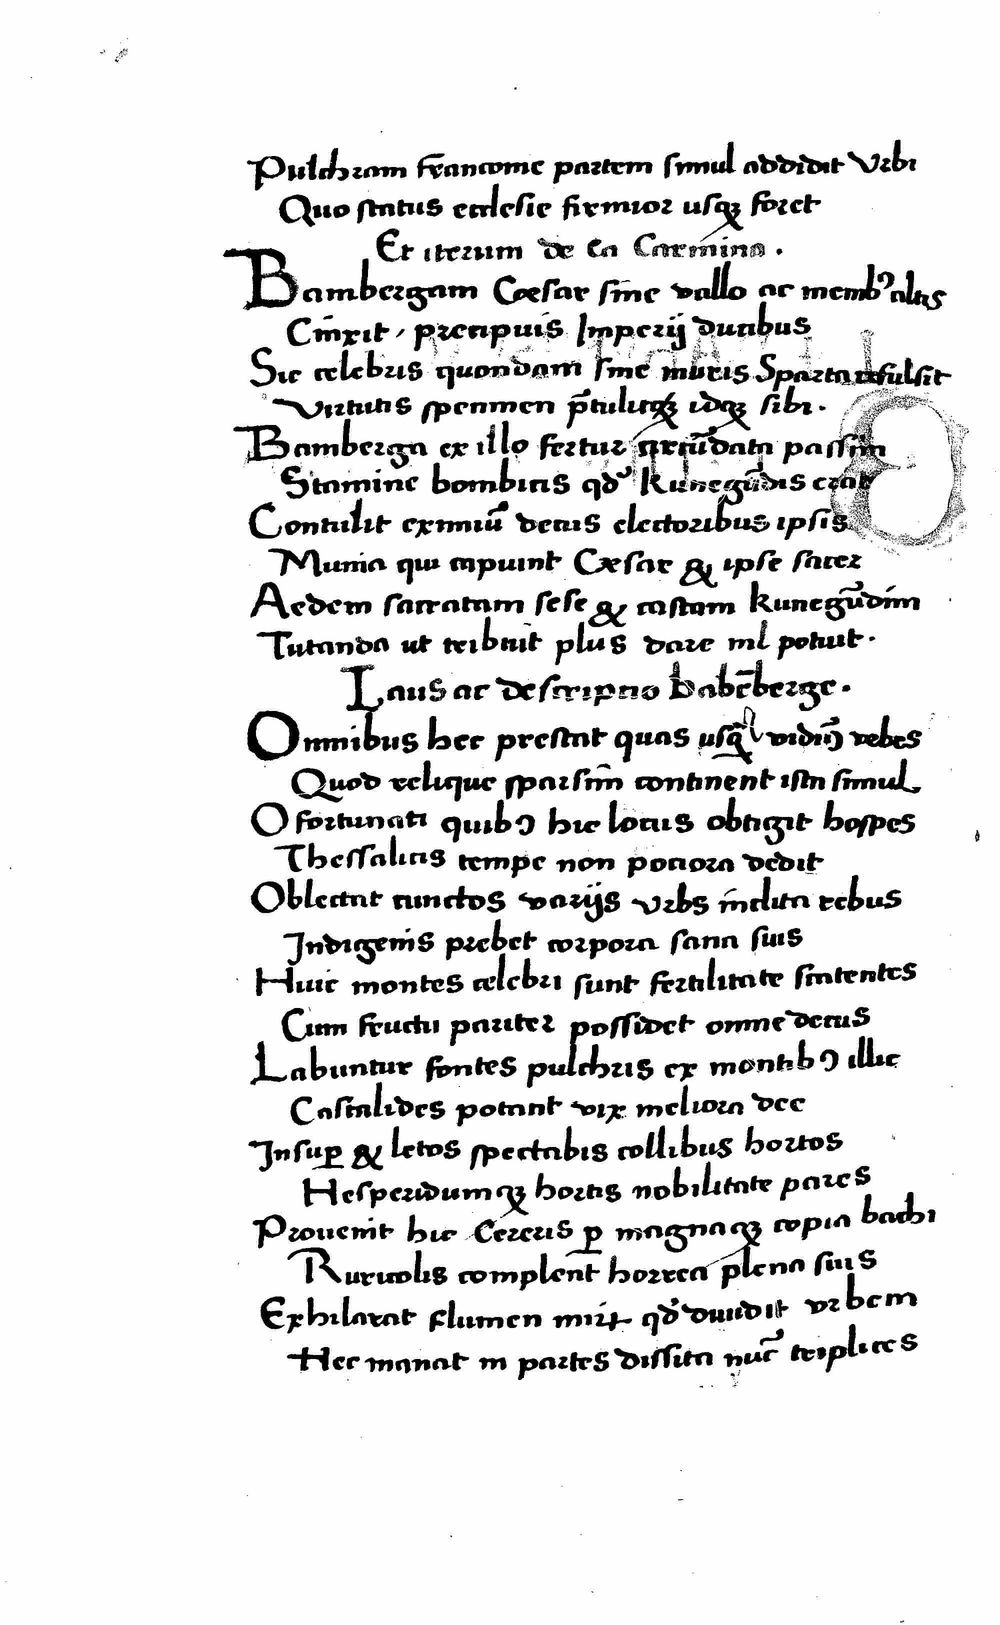 Pulchram franconie partem simul addidit Vrbi
Quo status ecclesie firmior usqꝫ foret
Et iterum de ea Carmina.
Bambergam Cæsar sine vallo ac membꝰ altis
Cinxit, precipuis Imperij ducibus
Sic celebris quondam sine muris Sparta refulsit
Virtutis specimen p̄tulitqꝫ idqꝫ sibi.
Bamberga ex illo fertur circūdata passim
Stamine bombicis qđ Kunegūdis erat
Contulit eximiū decus electoribus ipsis
Munia qui capiunt Cæsar & ipse sacer
Aedem sacratam sese & castam Kunegūdim
Tutanda ut tribuit plus dare nil potuit.
Laus ac descriptio Babēberge.
Omnibus hec prestat quas usqꝫ vidimꝰ vrbes
Quod relique sparsim continent ista simul
O fortunati quibꝰ hic locus obtigit hospes
Thessalicis tempe non pociora dedit
Oblectat cunctos varijs vrbs inclita rebus
Indigenis prebet corpora sana suis
Huic montes celebri sunt fertilitate scatentes
Cum fructu pariter possidet omne decus
Labuntur fontes pulchris ex montibꝰ illic
Castalides potant vix meliora dee
Insuꝑ & letos spectabis collibus hortos
Hesperidumqꝫ hortis nobilitate pares
Prouenit hic Cereris ꝑ magnaqꝫ copia bachi
Ruricolis complent horrea plena suis
Exhilarat flumen mirꝝ qđ diuidit vrbem
Hec manat in partes dissita nūc triplices